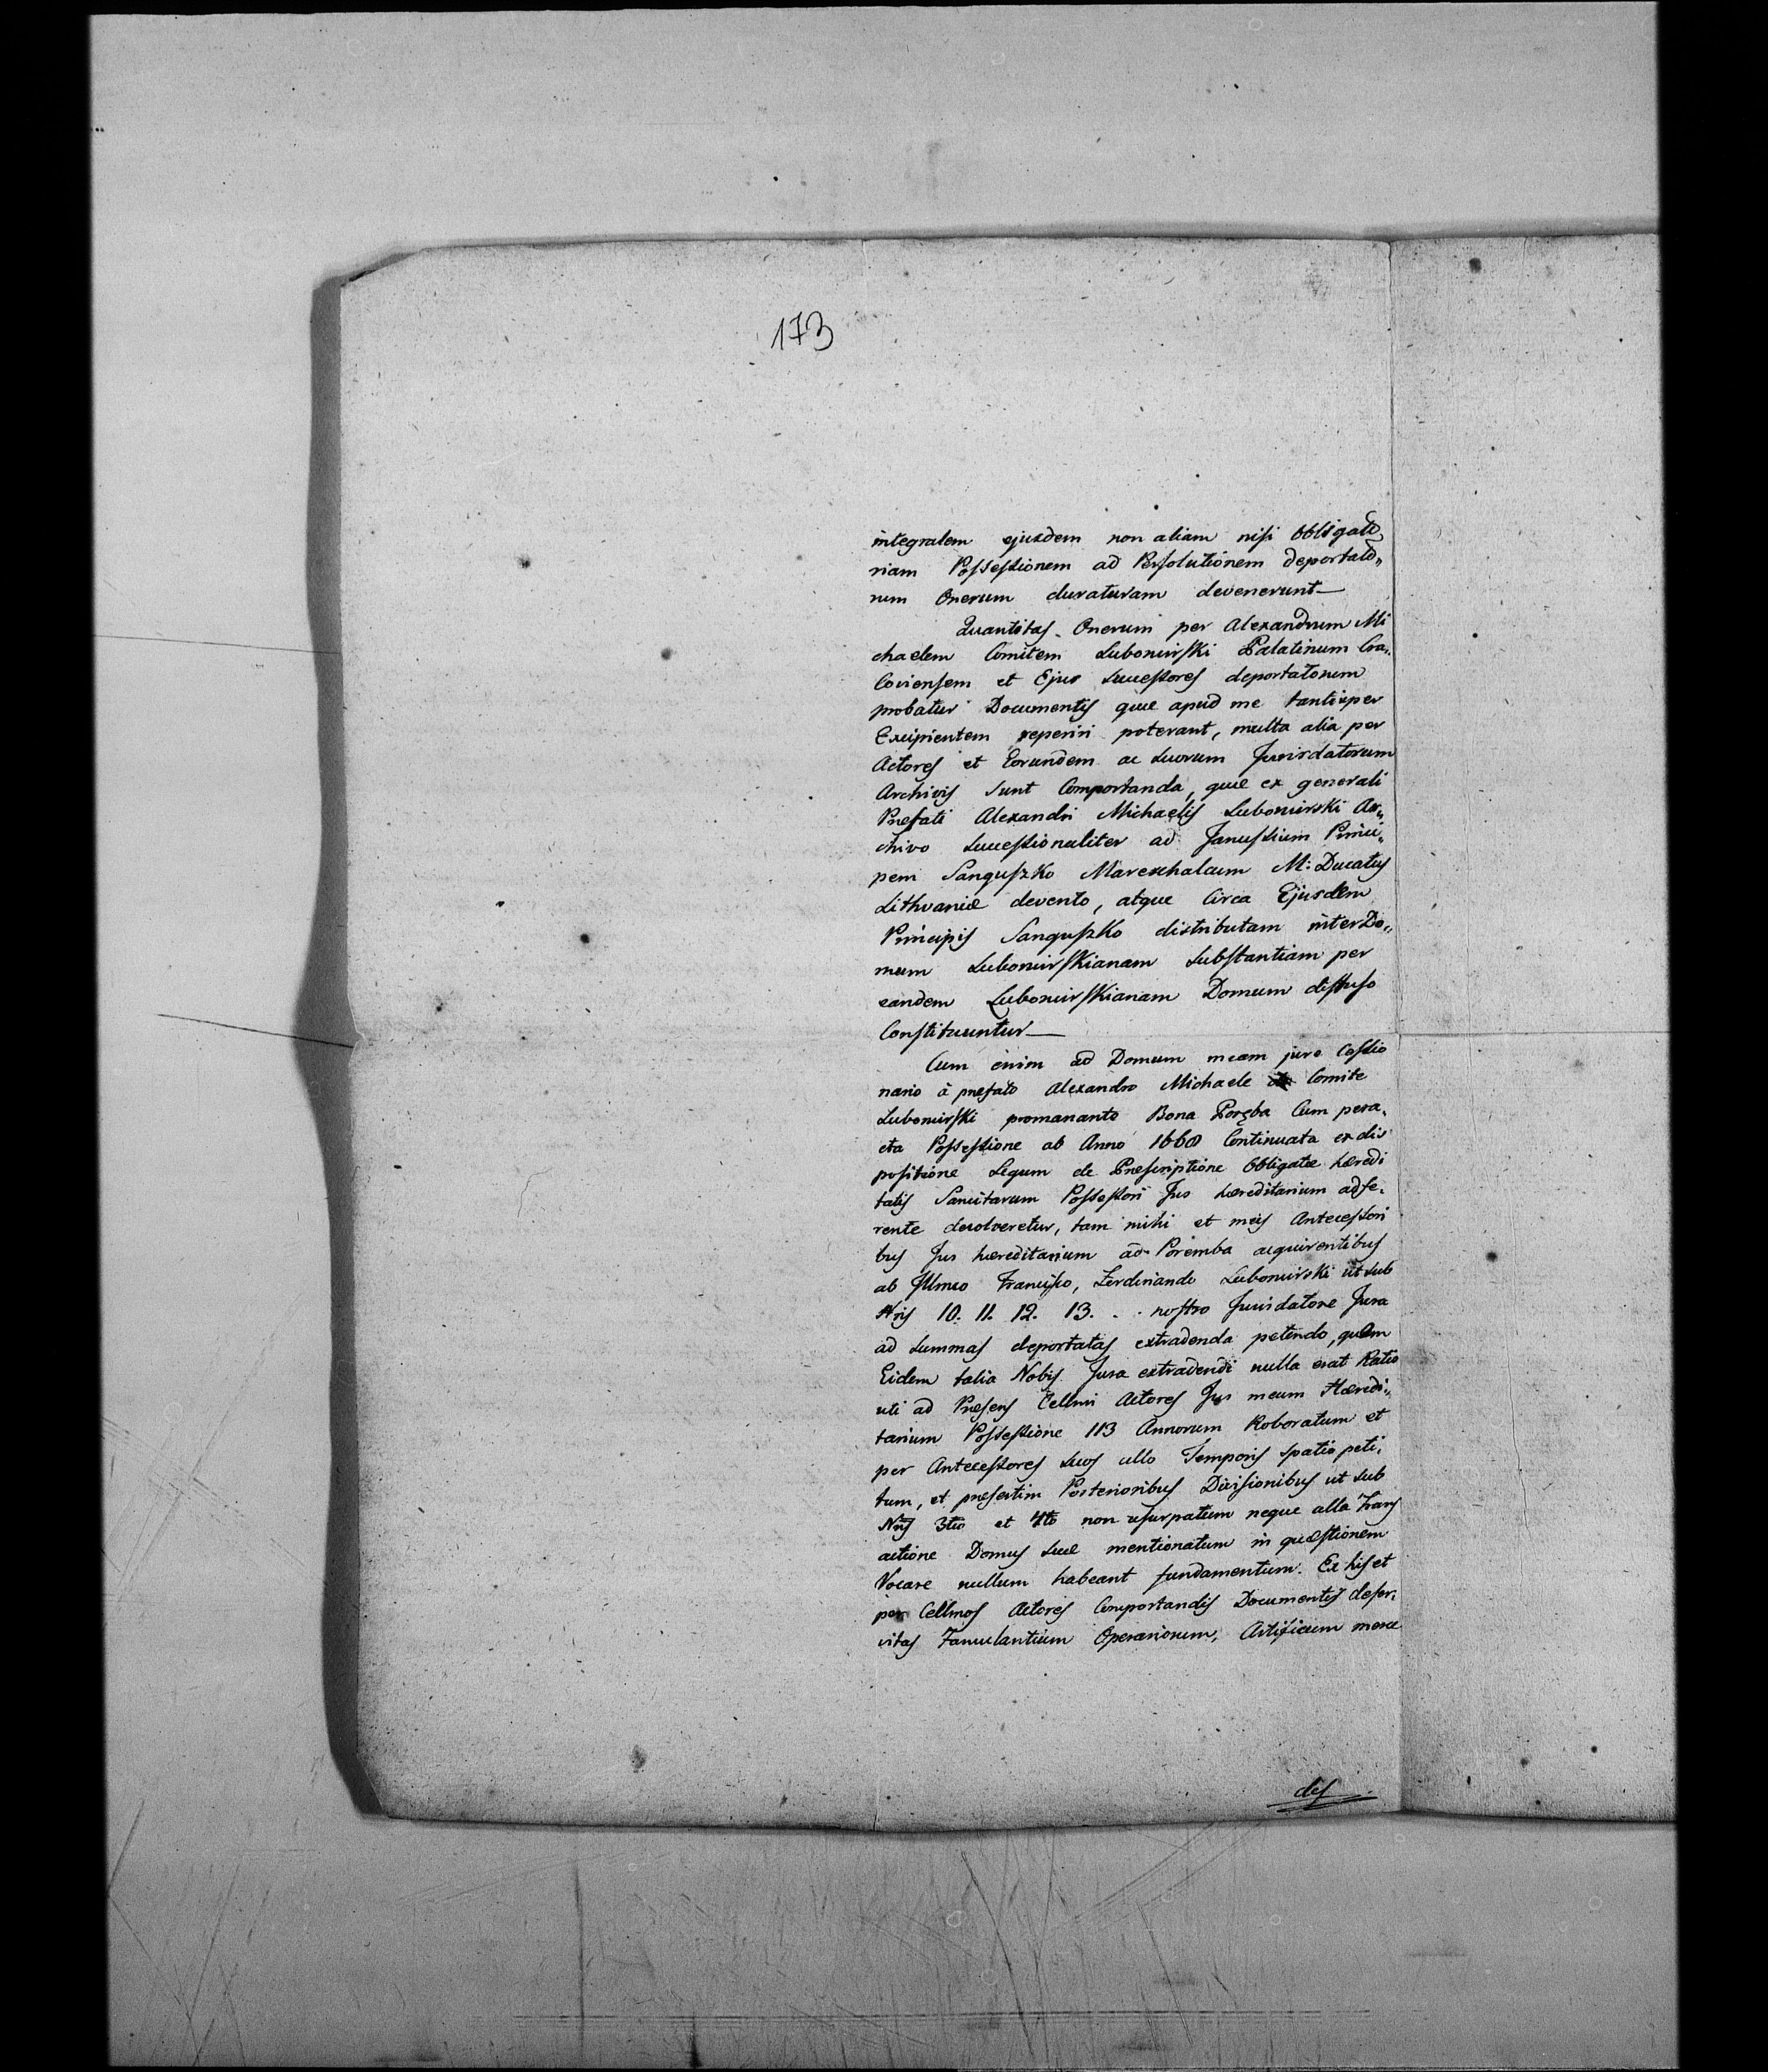 173
integralem ejusdem non aliam nisi obligato„
riam Possessionem ad Persolutionem deportato„
rum Onerum duraturam devenerunt—
Quantitas Onerum per Alexandrum Mi
chaelem Comitem Lubomirski Palatinum Cra„
coviensem et Ejus Successores deportatorum
probatur Documentis quæ apud me tantisper
Excipientem reperiri poterant, multa alia per
Actores et Eorundem ac Suorum Jurisdatorum
Archivis Sunt Comportanda, quæ ex generali
Prefati Alexandri Michaelis Lubomirski Ar„
chivo Successionaliter ad Janussium Princi„
pem Sanguszko Mareschalcum M: Ducatus
Lithvaniæ devento, atque Circa Ejusdem
Principis Sanguszko distributam inter Do„
mum Lubomirskianam Substantiam per
eandem Lubomirskianam Domum diffuso
Constituuntur—
Cum enim ad Domum meam jure Cessio
nario à prefato Alexandro Michaele Comite
Lubomirski promananto Bona Poręba Cum pera„
cta Possessione ab Anno 1668 Continuata ex dis
positione Legum de Prescriptione Obligatæ hæredi
tatis Sancitarum Possessori Jus hæreditarium adfe„
rente devolveretur, tam mihi et meis Antecessori
bus Jus hæreditarium ad Poremba acquirentibus
ab Illmeo Francisco, Ferdinando Lubomirski ut sub
Nris 10. 11. 12. 13. . . nostro Jurisdatore Jura
ad Summas deportatas extradenda petendo, quam
Eidem talia Nobis Jura extradendi nulla erat Ratio
uti ad Presens Cellmi Actores Jus meum Hæredi„
tarium Possessione 113 Annorum Roboratum et
per Antecessores Suos ullo Temporis Spatio peti„
tum, et presertim Posterioribus Divisionibus ut sub
Nris 3tio et 4to non usurpatum neque alla Trans
actione Domus Suæ mentionatum in quæstionem
Vocare nullum habeant fundamentum. Ex his et
per Cellmos Actores Comportandis Documentis deser„
vitas Famulantium Operariorum, Artificum merce
des